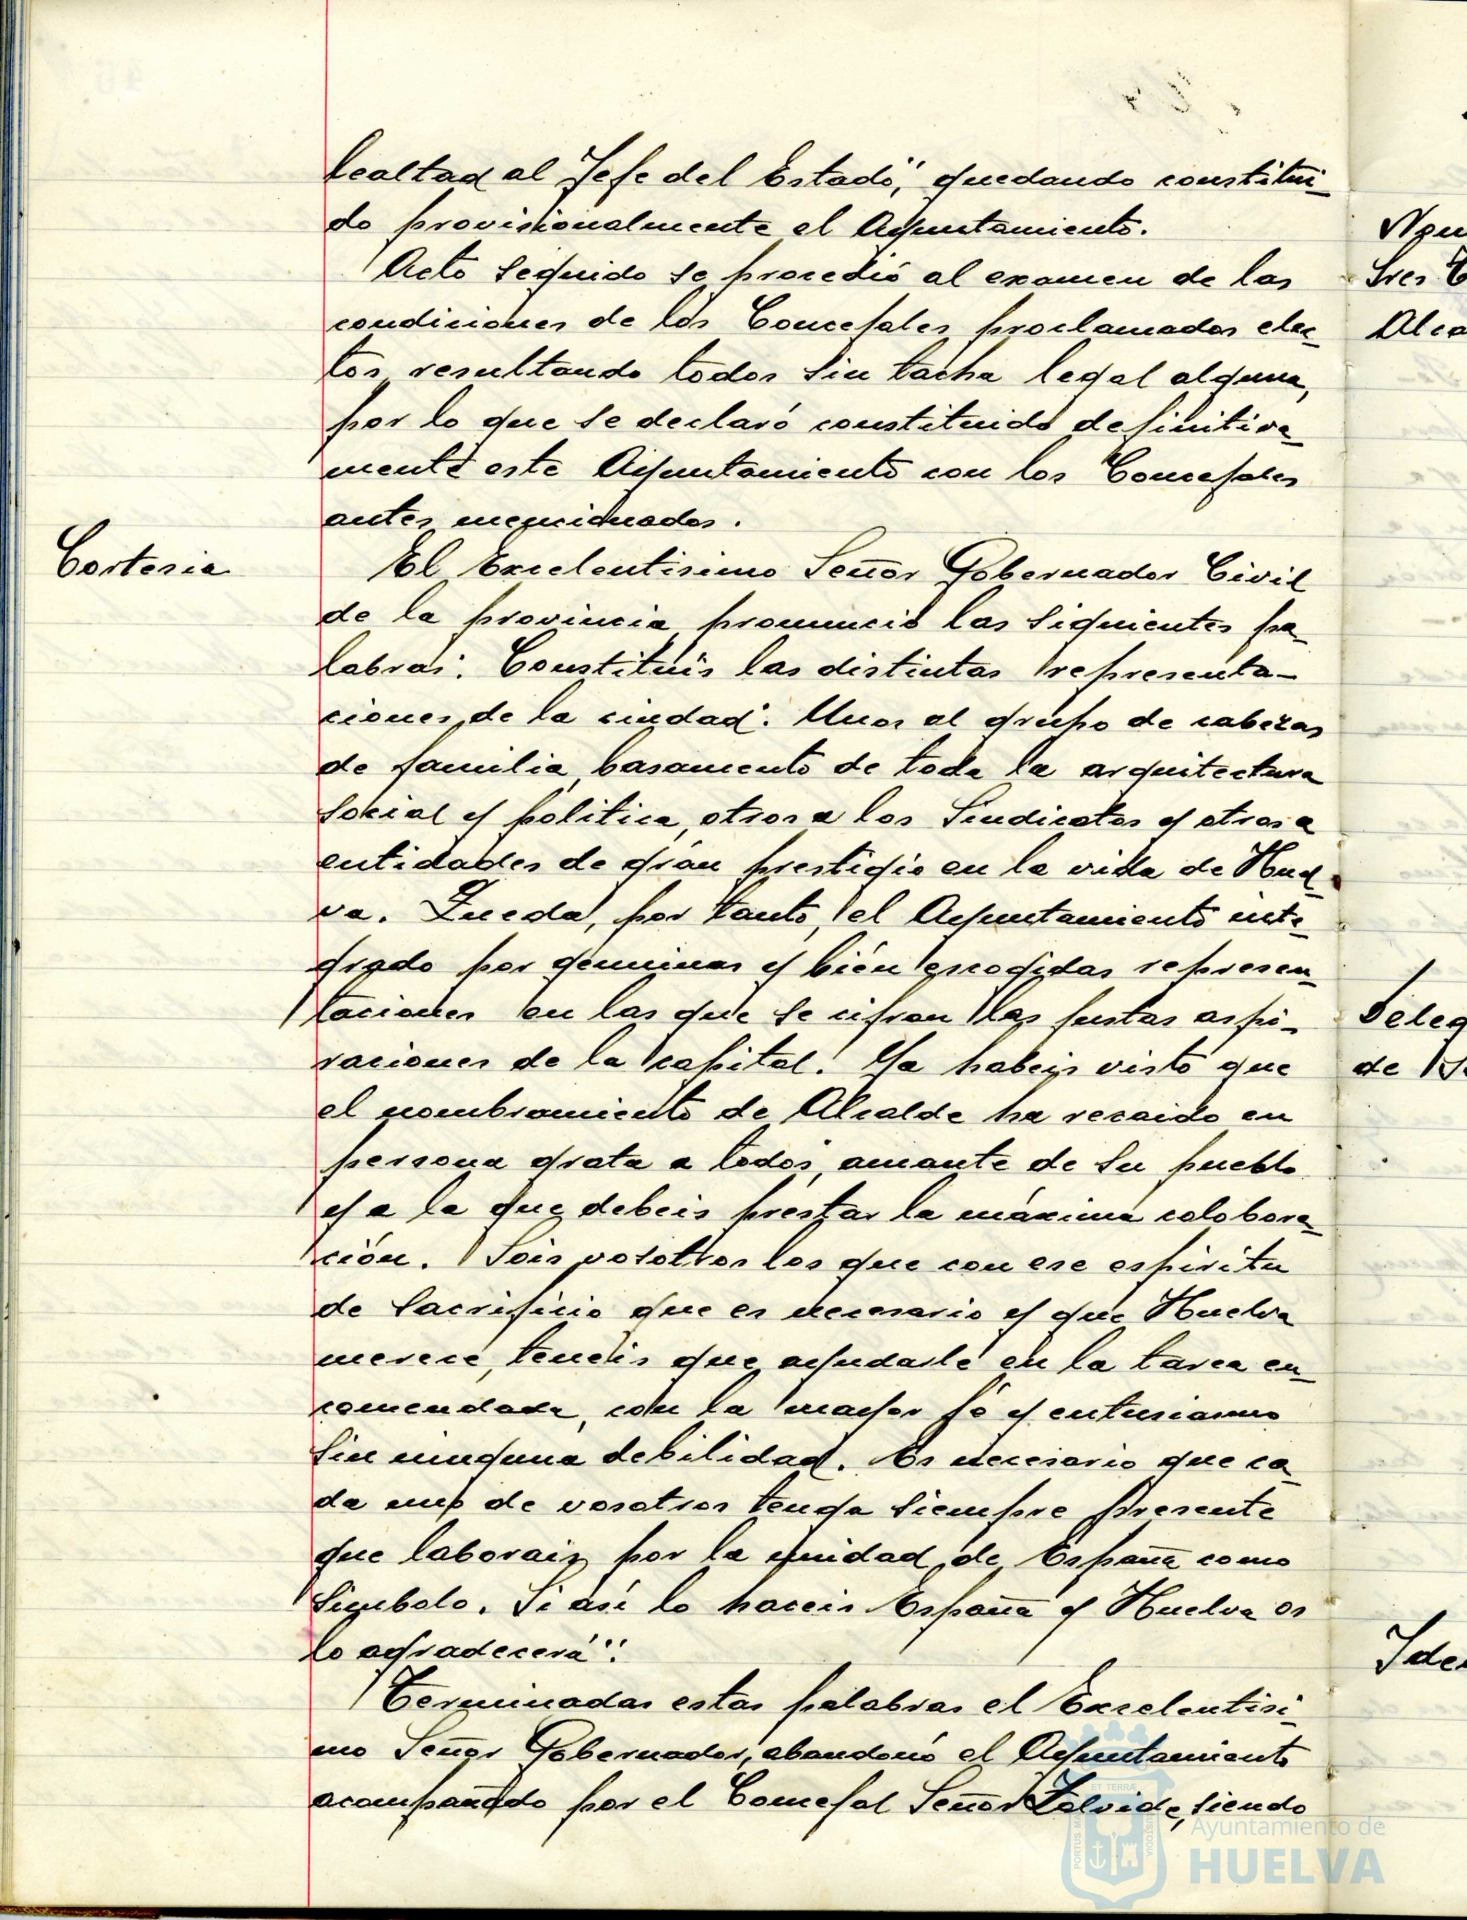 lealtad al Jefe del Estado", quedando constitui-
do provisionalmente el Ayuntamiento.
Acto seguido se procedió al examen de las
condiciones de los Concejales proclamados elec-
tos, resultando todos sin tacha legal alguna,
por lo que se declaró constituido definitiva-
mente este Ayuntamiento con los Concejales
antes mencionados.
Cortesia
El Excelentisimo Señor Gobernador Civil
de la provincia, pronunció las siguientes pa-
labras: Constituis las distintas representa-
ciones de la ciudad. Unos al grupo de cabezas
de familia, basamento de toda la arquitectura
social y politica, otros a los Sindicatos y otros a
entidades de gran prestigio en la vida de Huel-
va. Queda, por tanto, el Ayuntamiento inte-
grado por genuinas y bién escogidas represen-
taciones en las que se cifran las justas aspi-
raciones de la capital. Ya habeis visto que
el nombramiento de Alcalde ha recaido en
persona grata a todos, amante de su pueblo
y a la que debeis prestar la máxima colobora-
ción. Sois vosotros los que con ese espiritu
de sacrificio que es necesario y que Huelva
merece, teneis que ayudarle en la tarea en-
comendada, con la mayor fé y entusiasmo
sin ninguna debilidad. Es necesario que ca-
da uno de vosotros tenga siempre presente
que laborais por la unidad de España como
simbolo. Si así lo haceis España y Huelva os
lo agradecerá".
Terminadas estas palabras el Excelentisi-
mo Señor Gobernador, abandonó el Ayuntamiento
acompañado por el Concejal Señor Zalvide, siendo
Sres
Alca
Deleg
de
Ide
Ayuntamiento de
HUELVA